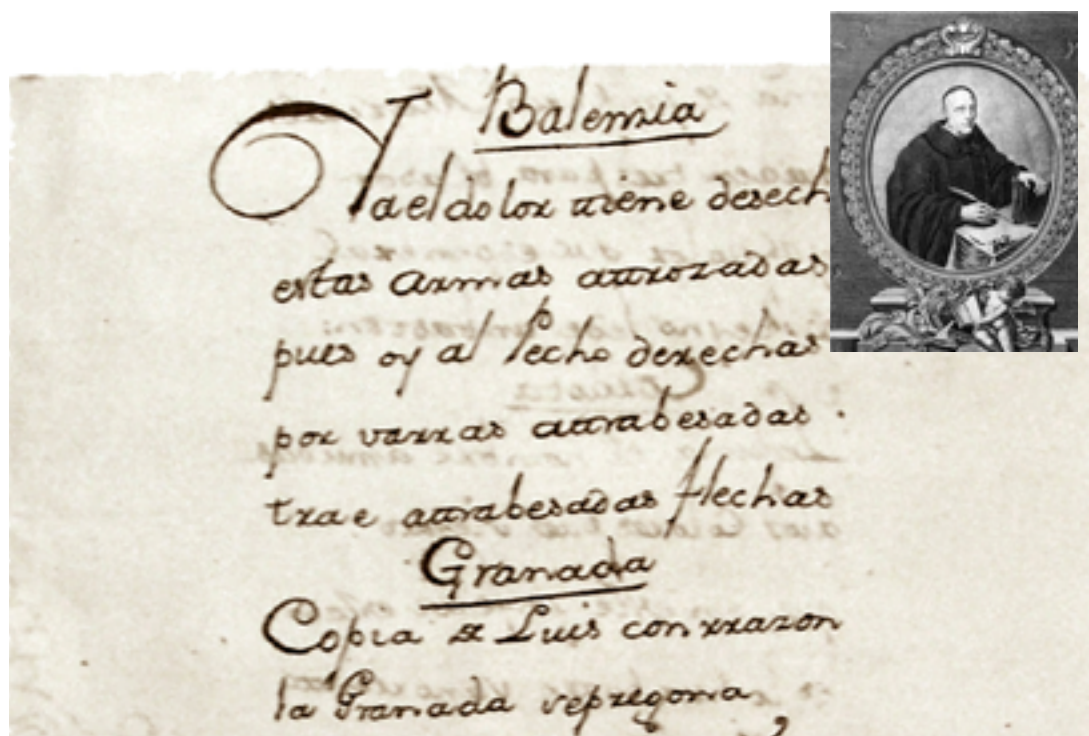 Balenzia
Ya el dolor tiene desech
estas armas attrozadas
pues oy al Pecho derechas
por varras attrabesadas.
trae attrabesadas flechas
Granada
Copia de Luis con rrazon
la Granada se pregona,